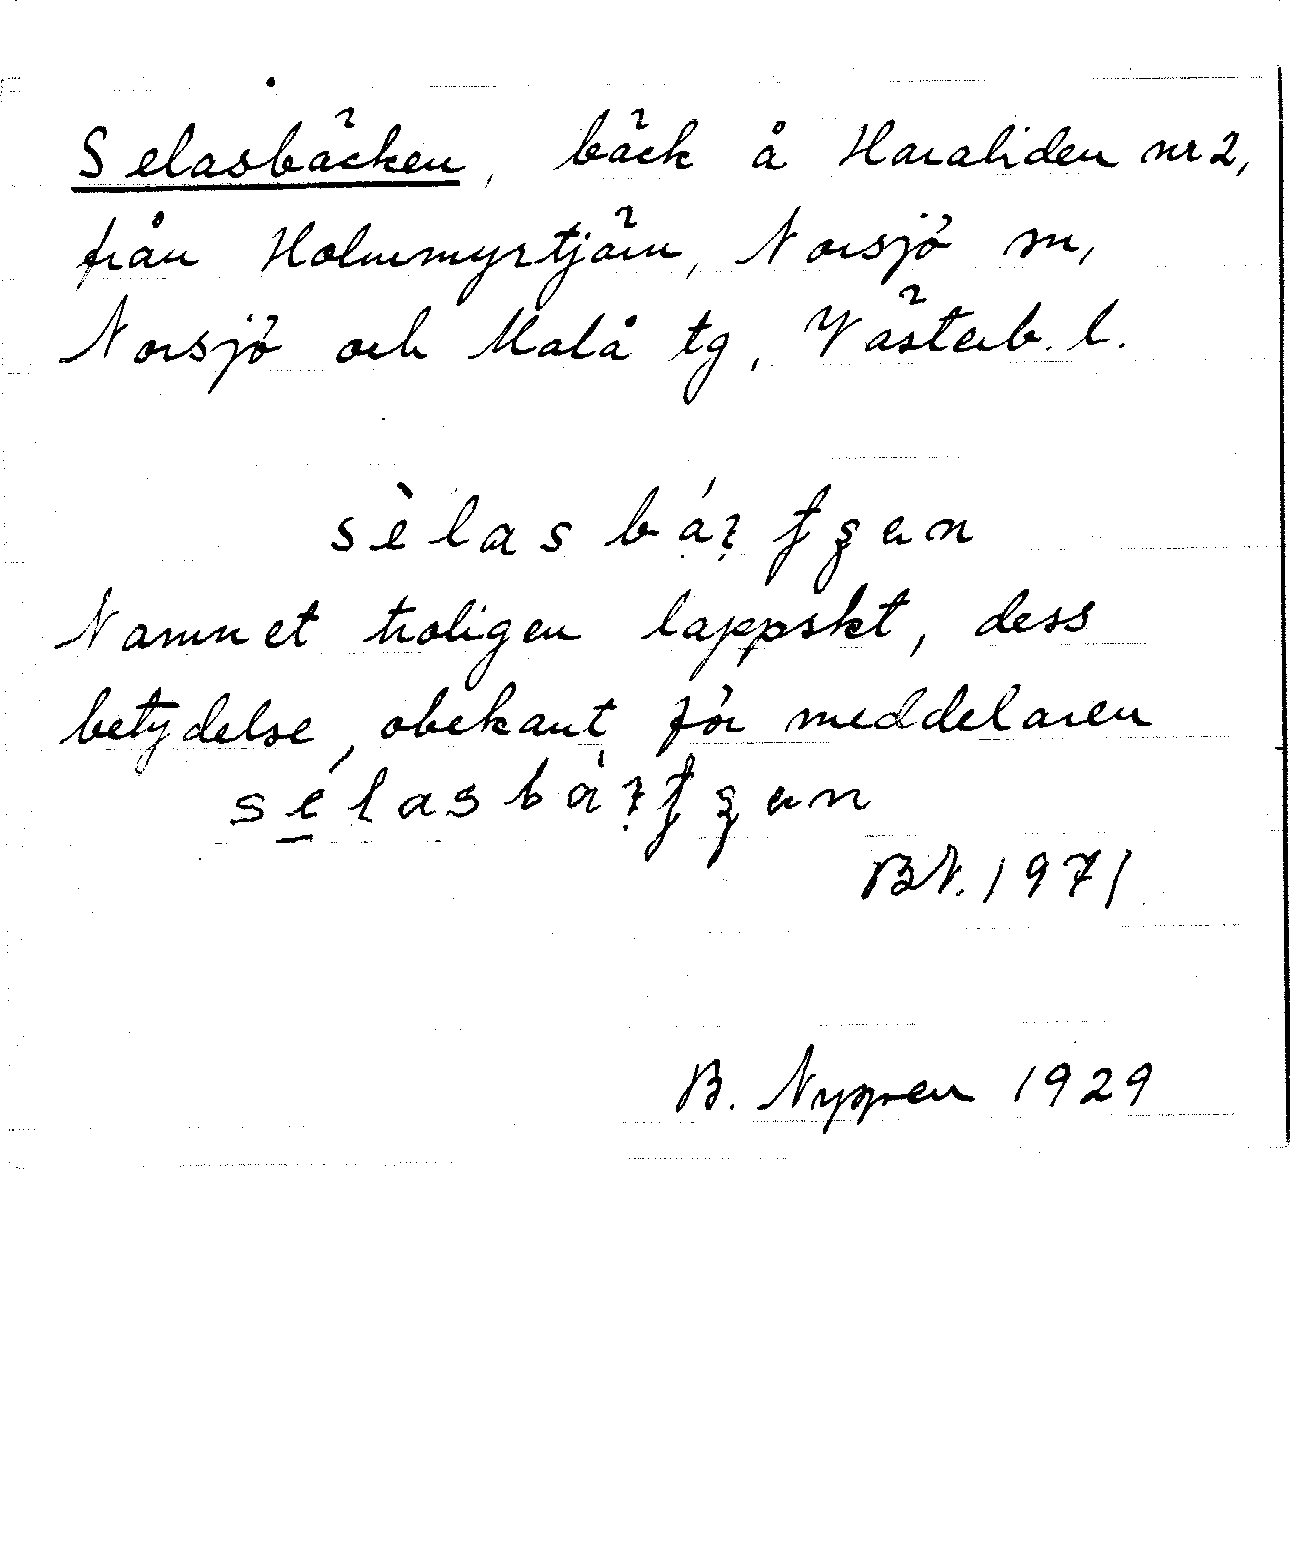 Selasbäcken, bäck å Haraliden nr 2,
från Holmmyrtjärn, Norsjö sn,
Norsjö och Malå tg, Västerb. l.
Namnet troligen lappskt, dess
betydelse obekant för meddelaren
BN. 1971
B. Nygren 1929